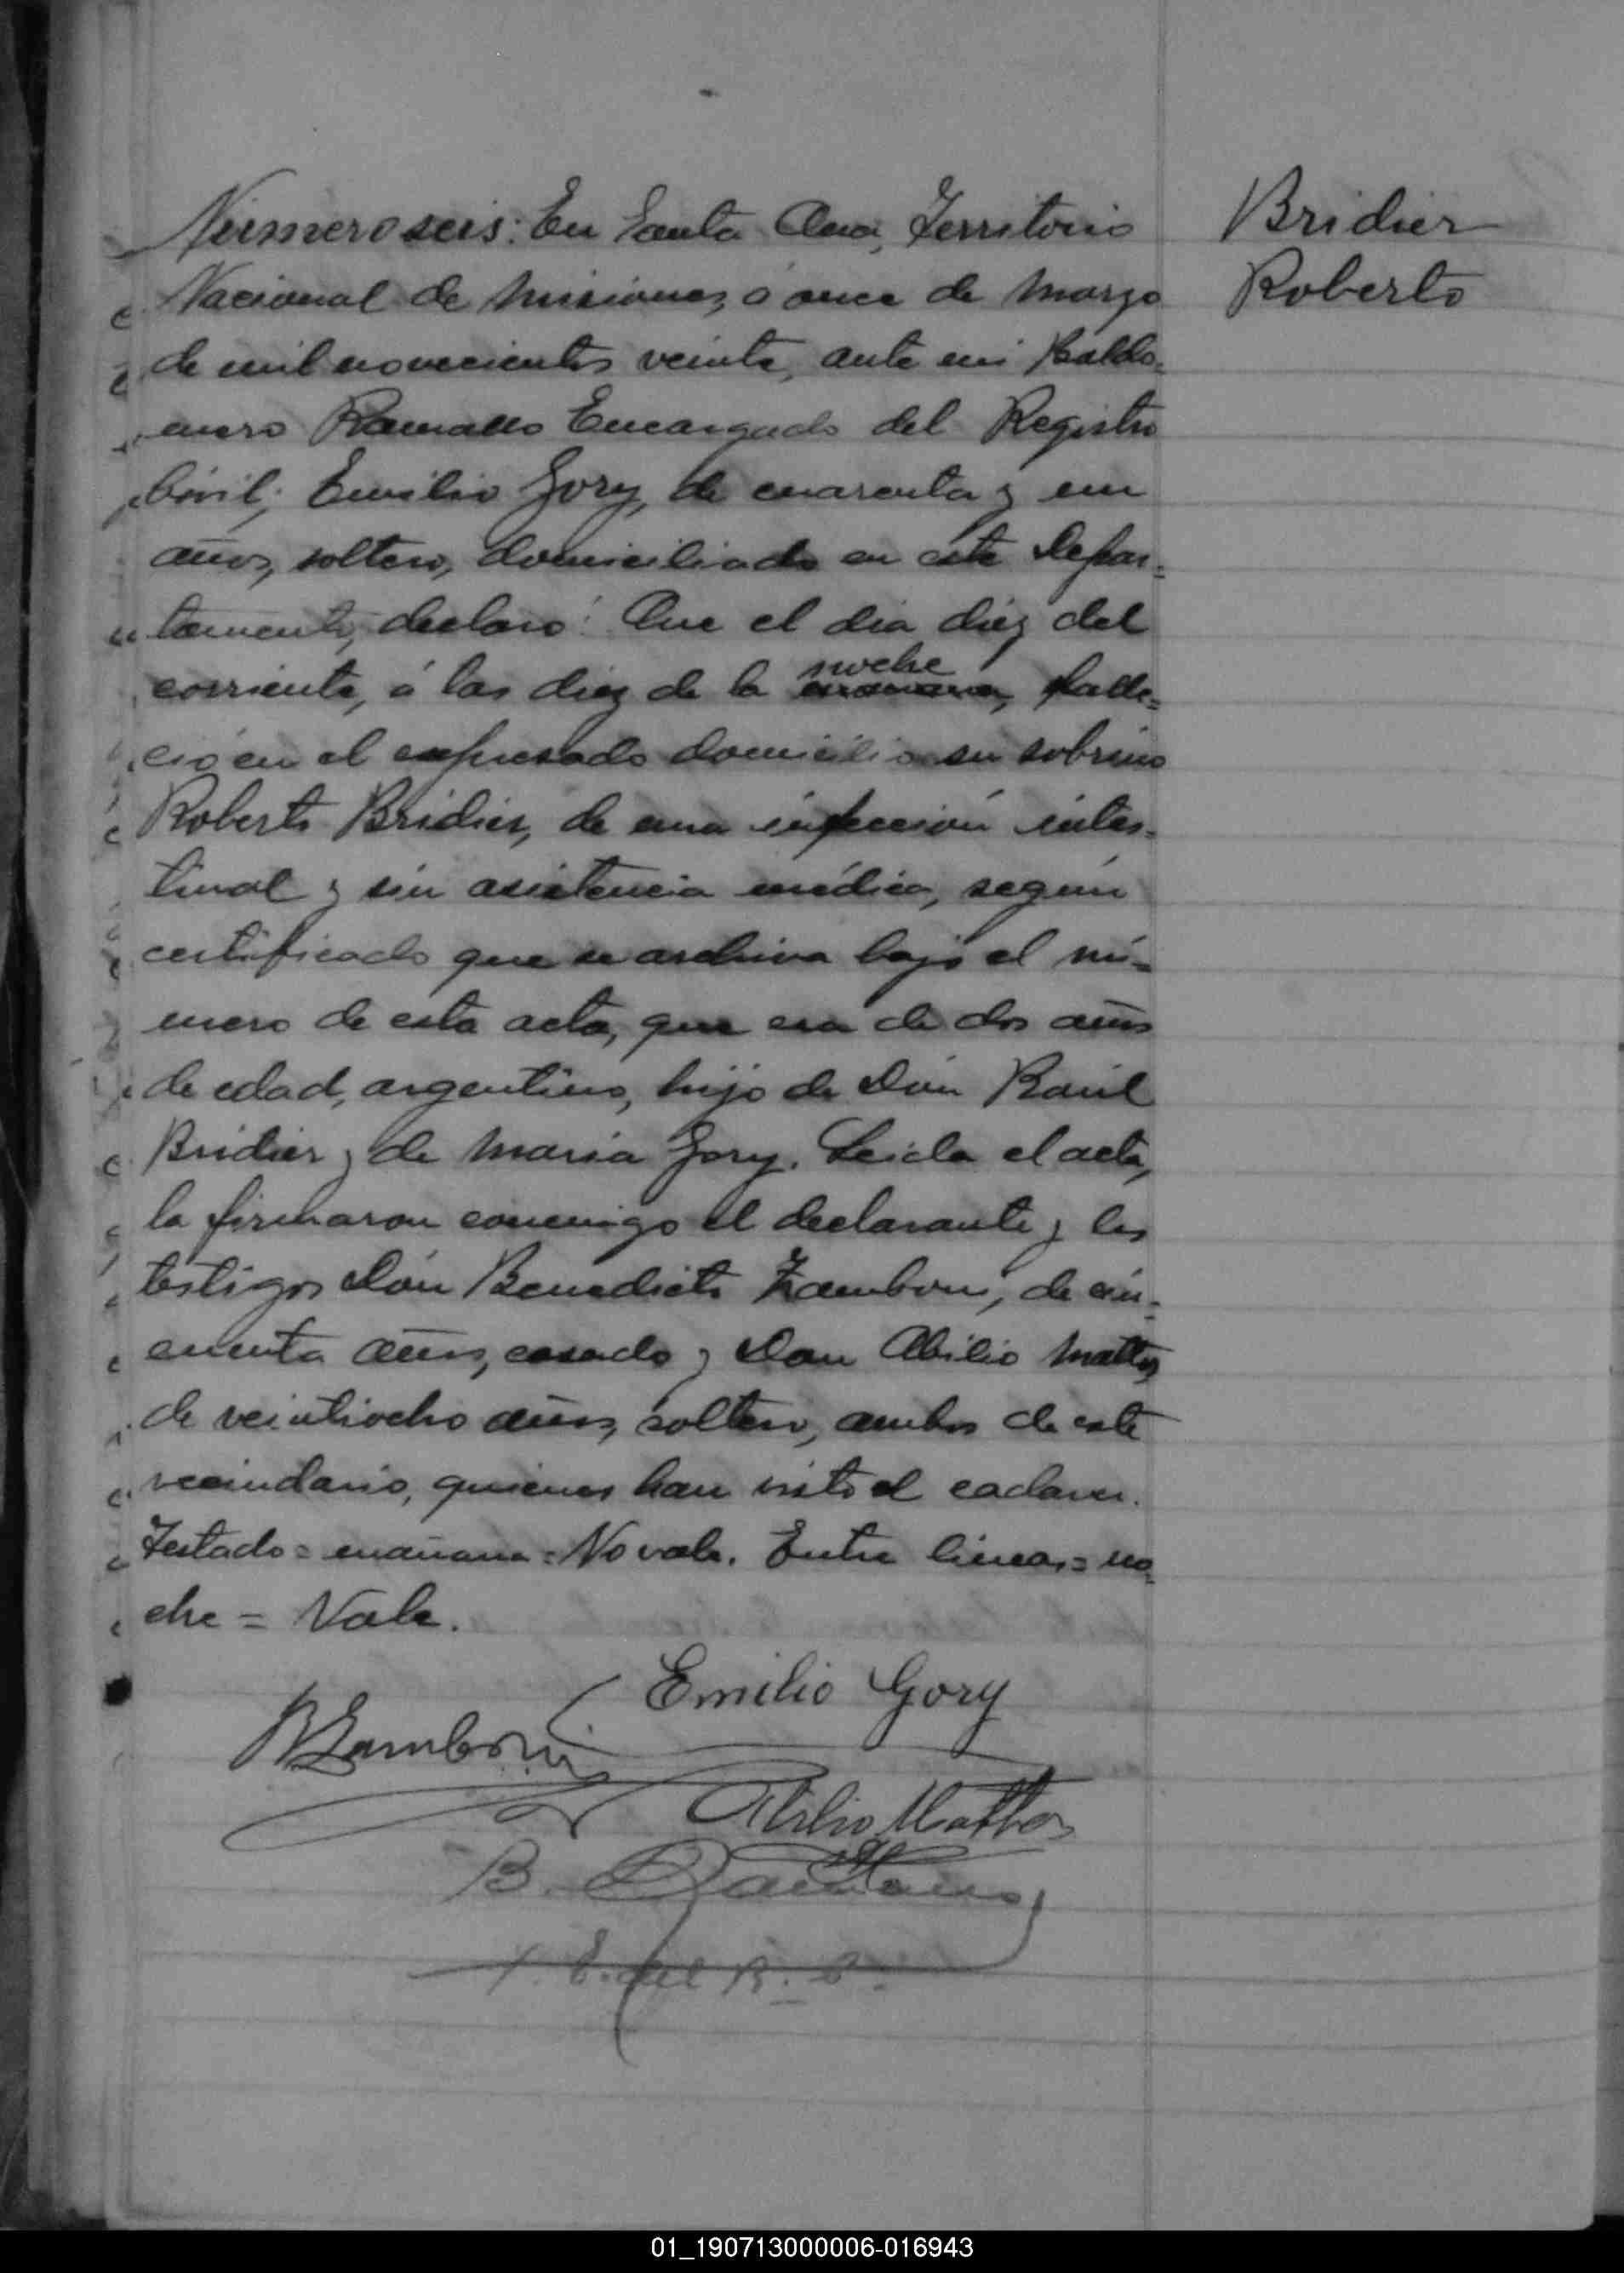 Número seis: En Santa Ana, Territorio
Nacional de Misiones, á once de Marzo
de mil novecientos veinte, ante mi Baldo-
mero Ramallo Encargado del Registro
Civil; Emilio Gory, de cuarenta y un
años, soltero, domiciliado en este Depar-
tamento, declaró: Que el dia diez del
corriente, á las diez de la mañana, noche falle-
ció en el expresado domicilio su sobrino
Roberto Bridier, de una infección intes-
tinal y sin asistencia médica, según
certificado que se archiva bajo el nú-
mero de esta acta, que era de dos años
de edad, argentino, hijo de Don Raúl
Bridier y de Maria Gory. Leida el acta,
la firmaron conmigo el declarante y los
testigos Dón Benedicto Zamboni, de cin-
cuenta años, casado y Don Abilio Mattos
de veintiocho años, soltero, ambos de este
vecindario, quienes han visto el cadaver.
Testado = mañana = No vale. Entre lineas = no-
che = Vale.
Emilio Gory
B Zamboni
Abilio Mattos
B. Ramallo
E. del R. C.
Bridier
Roberto
01_190713000006-016943